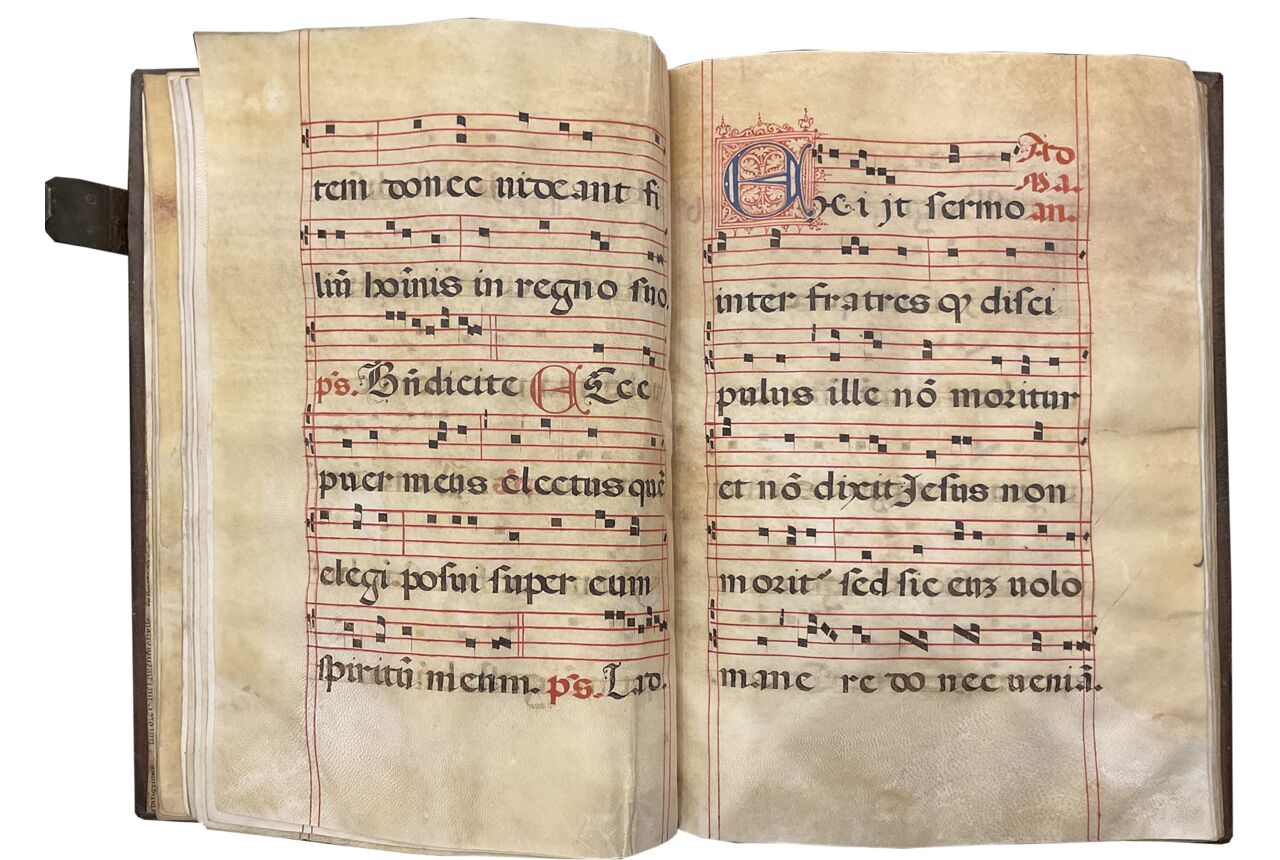 tem donec videant fi
liũ hoĩnis in regno suo.
ps. Bñdicite Ecce
puer meus electus quẽ
elegi posui super eum
spiritũ meum. ps. Lad.
Ad
Ma.
Exi jt sermo an.
inter fratres qȝ disci
pulus ille nõ moritur
et nõ dixit Jesus non
morit᷑ sed sic euȝ uolo
mane re do nec ueniã.